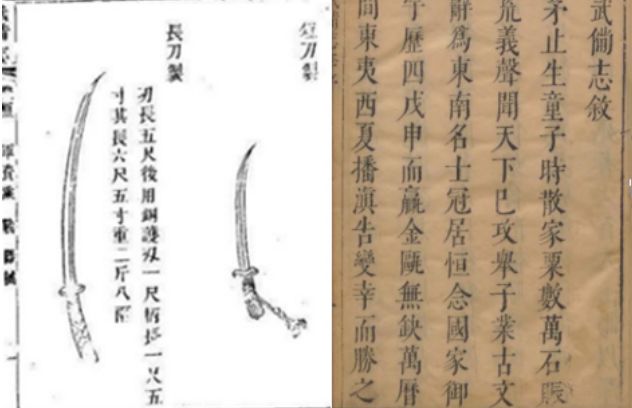 武偹志敘
茅止生童子時散家粟數萬石賑
荒義聲聞天下巳攻舉子業古文
辭爲東南名士冠居恒念國家御
宇歷四戊申而贏金甌無缺萬曆
間東夷西夏播滇告變幸而勝之
短刀製
長刀製
刃長五尺後用銅護刃一尺柄長一尺五
寸共長六尺五寸重二斤八兩